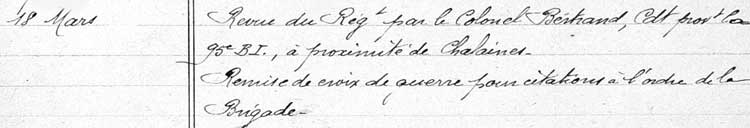 18 Mars Revue du Régt par le Colonel Bertrand, Cdt provt la
95e B.I., à proximité de Chalaines.
Remise de croix de guerre pour citations à l'ordre de la
Brigade.